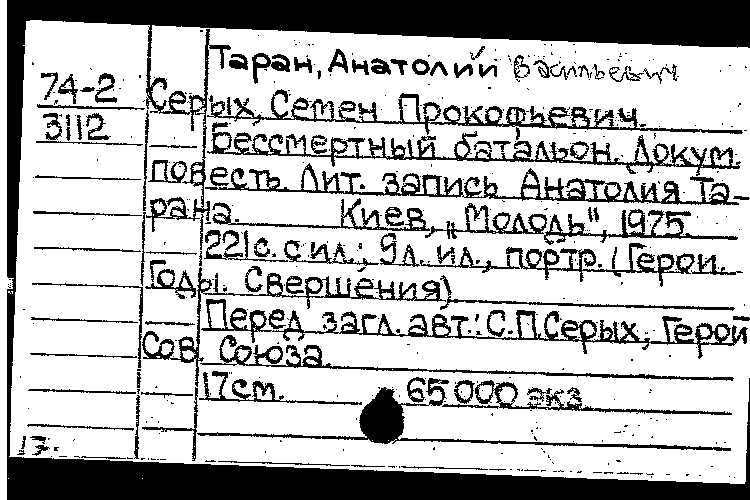 Таран, Анатолий Васильевич
74-2 Серых, Семен Прокофьевич.
3112 Бессмертный батальон. Докум.
повесть. Лит. запись Анатолия Та-
рана. Киев, „Молодь", 1975.
221с. с ил.; 9л. ил., портр. (Герои.
Годы. Свершения)
Перед загл. авт.: С.П.Серых, Герой
Сов. Союза.
17см. 65 000 экз
17.